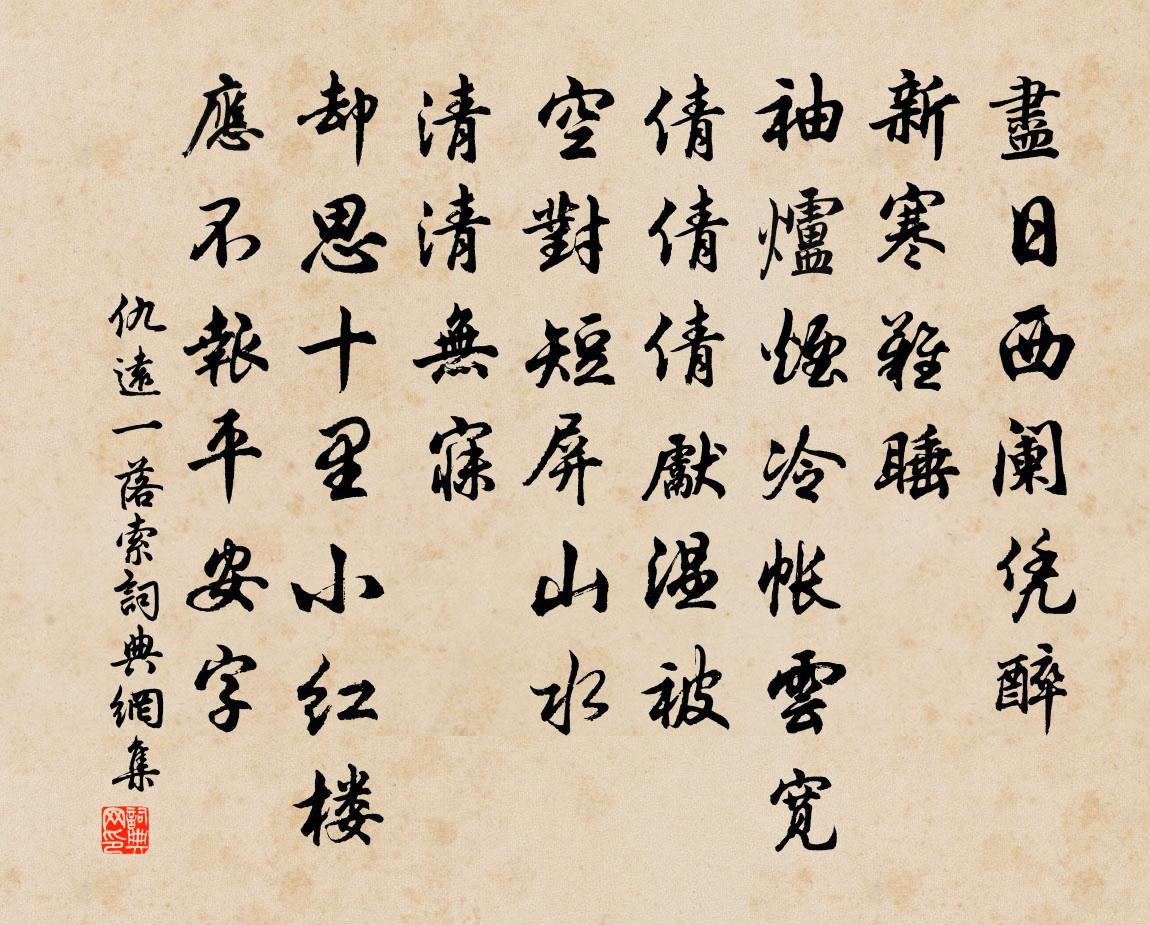 盡日西阑凭醉
新寒難睡
袖爐煙冷帐雲寬
倩倩倩獻温被
空對短屏山水
清清無寐
却思十里小红楼
應不報平安字
仇遠一落索詞典網集
詞典网印